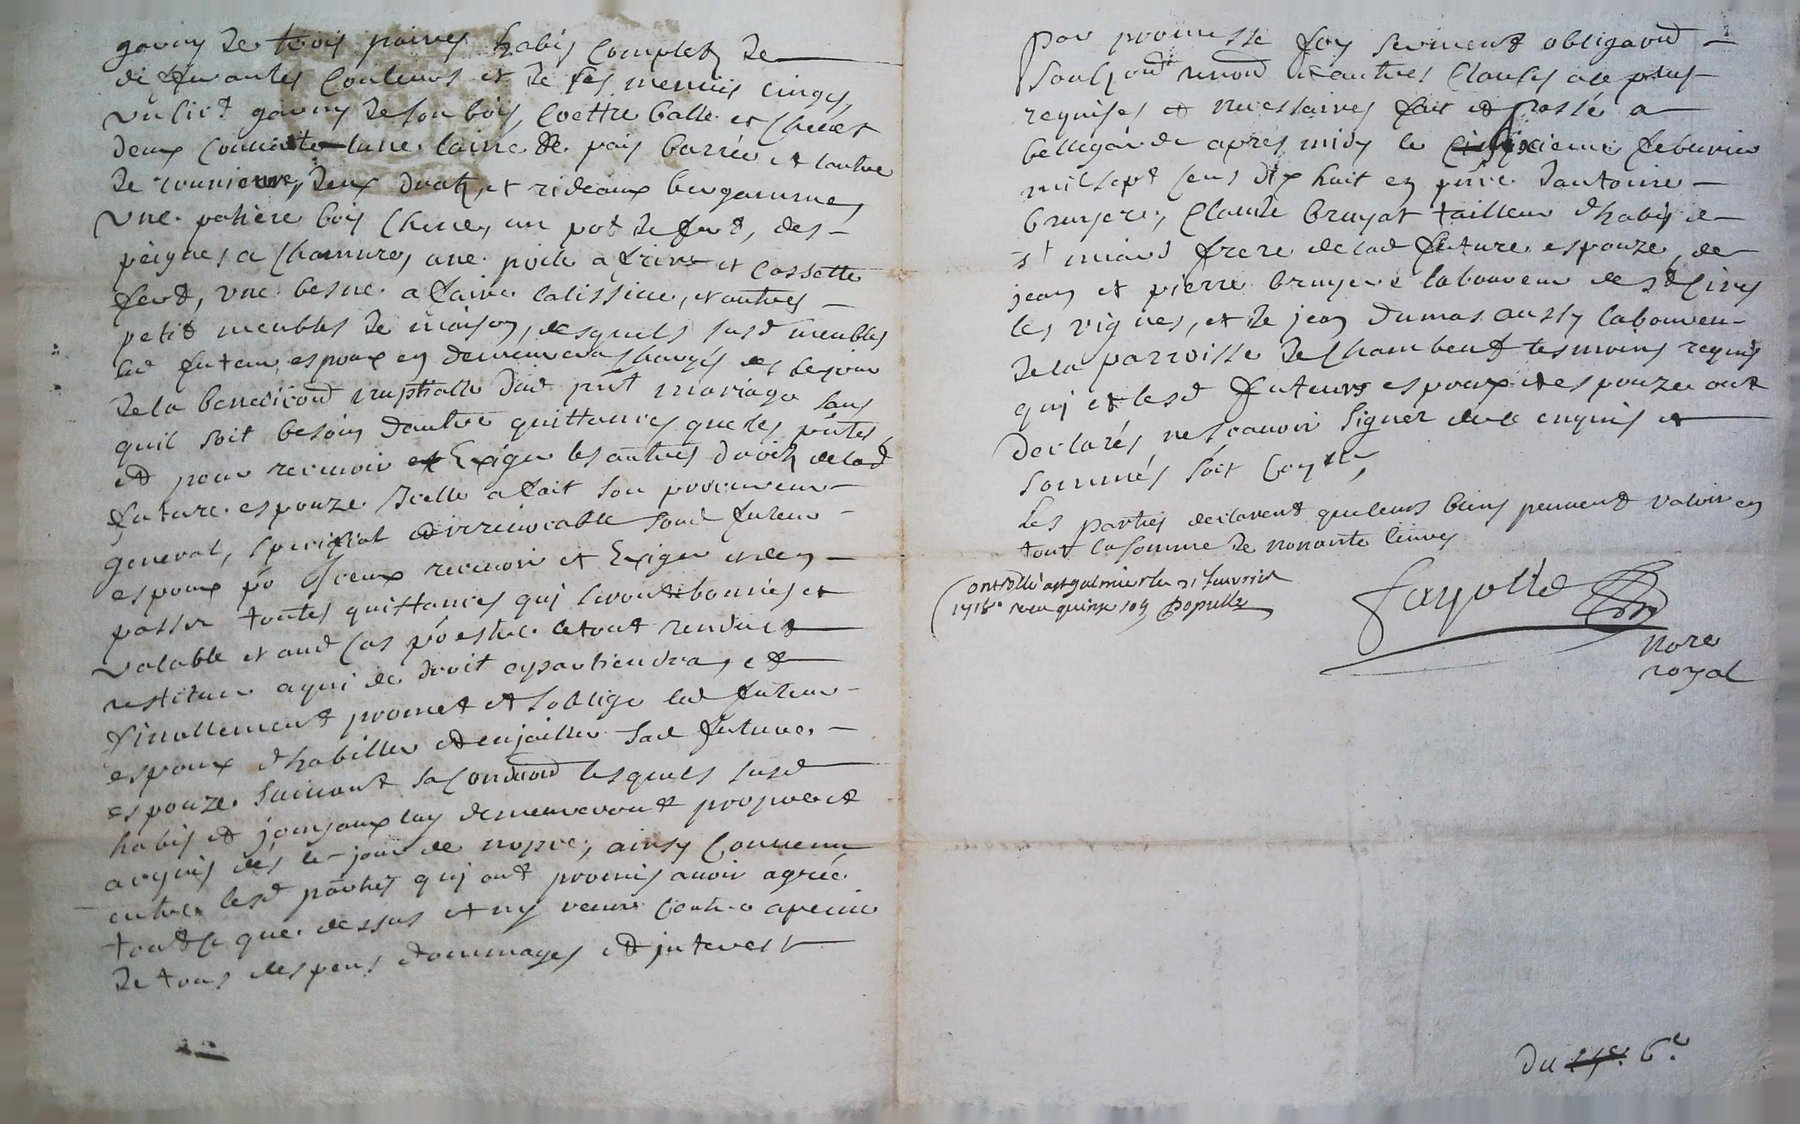 garny de trois paires habis complet de
differantes couleurs et de ses menuis linges,
un lict garny de son bois, coettre balle et chevet
deux couuerte lune laine de païs barrée et lautre
de, deux drapt, et rideaux bergamme,
une patiere bois chene, un pot de fert, des
peignes a chamure, une poile a frire et cassette
fert, une besne a faire la lissiue, et autres
petit meubles de maison, desquels susd meubles
led futeur espoux en demeurera chargés des le jour
de la benediction nuptialle dud pnt mariage sans
quil soit besoin dautre quittances que les pntes
et pour receuoir et exiger les autres droits de lad
future espouze icelle a fait son procureur
general, special et irreuocable sond futeur
espoux po iceux receuoir et exiger et en
passer toutes quittances qui seront bonnes et
valable et aud cas po estre le tout rendu et
restituer a qui de droit apartiendra, et
finallement promet et soblige led futeur
espoux dhabiller et enjoailler sad future
espouze suiuant sa condition lesquels susd
habis et joyaux luy demeureront propre et
acquis dès le jour de nopce, ainsy conuenu
entre lesd parties qui ont promis auoir agréé
tout ce que dessus et ny venir contre a peine
de tous despens dommages et interest
par promesse foy serment obligaond
soubzond renond et autres clauses a ce plus
requises et necessaires fait et passé a
bellegarde apres midy le sixieme feburier
mil sept cens dix huit en pnce dantoine
bruyere, Claude bruyat tailleur dhabis de
st miard frere de lad future espouze, de
jean et pierre bruyere laboureur de st Cires
les vignes, et de jean dumas aussy laboureur
de la parroisse de Chambeut tesmoins requis
qui et lesd futeurs espoux et espouze ont
declarés ne scauoir signer de ce enquis et
sommés soit Con lle,
Les parties declarent que leurs biens peuuent valoir en
tout la somme de nonante liures
Controllé a st galmier le 21 feuurier
1718. receu quinze sols
fayolle
nore
royal
du 6e